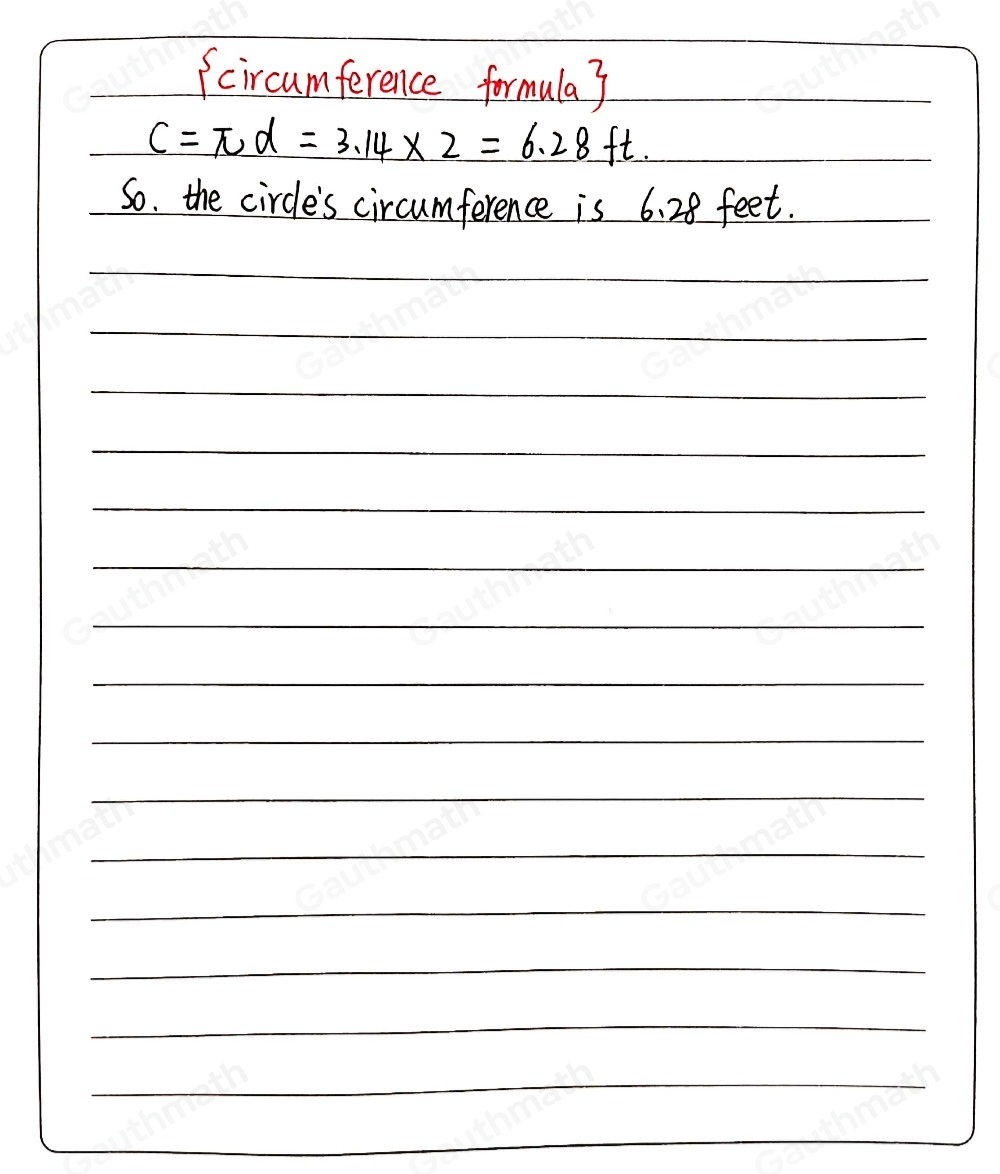 {circumference formula}
C = πd = 3.14 × 2 = 6.28 ft.
So. the circle's circumference is 6.28 feet.
Gauthmath